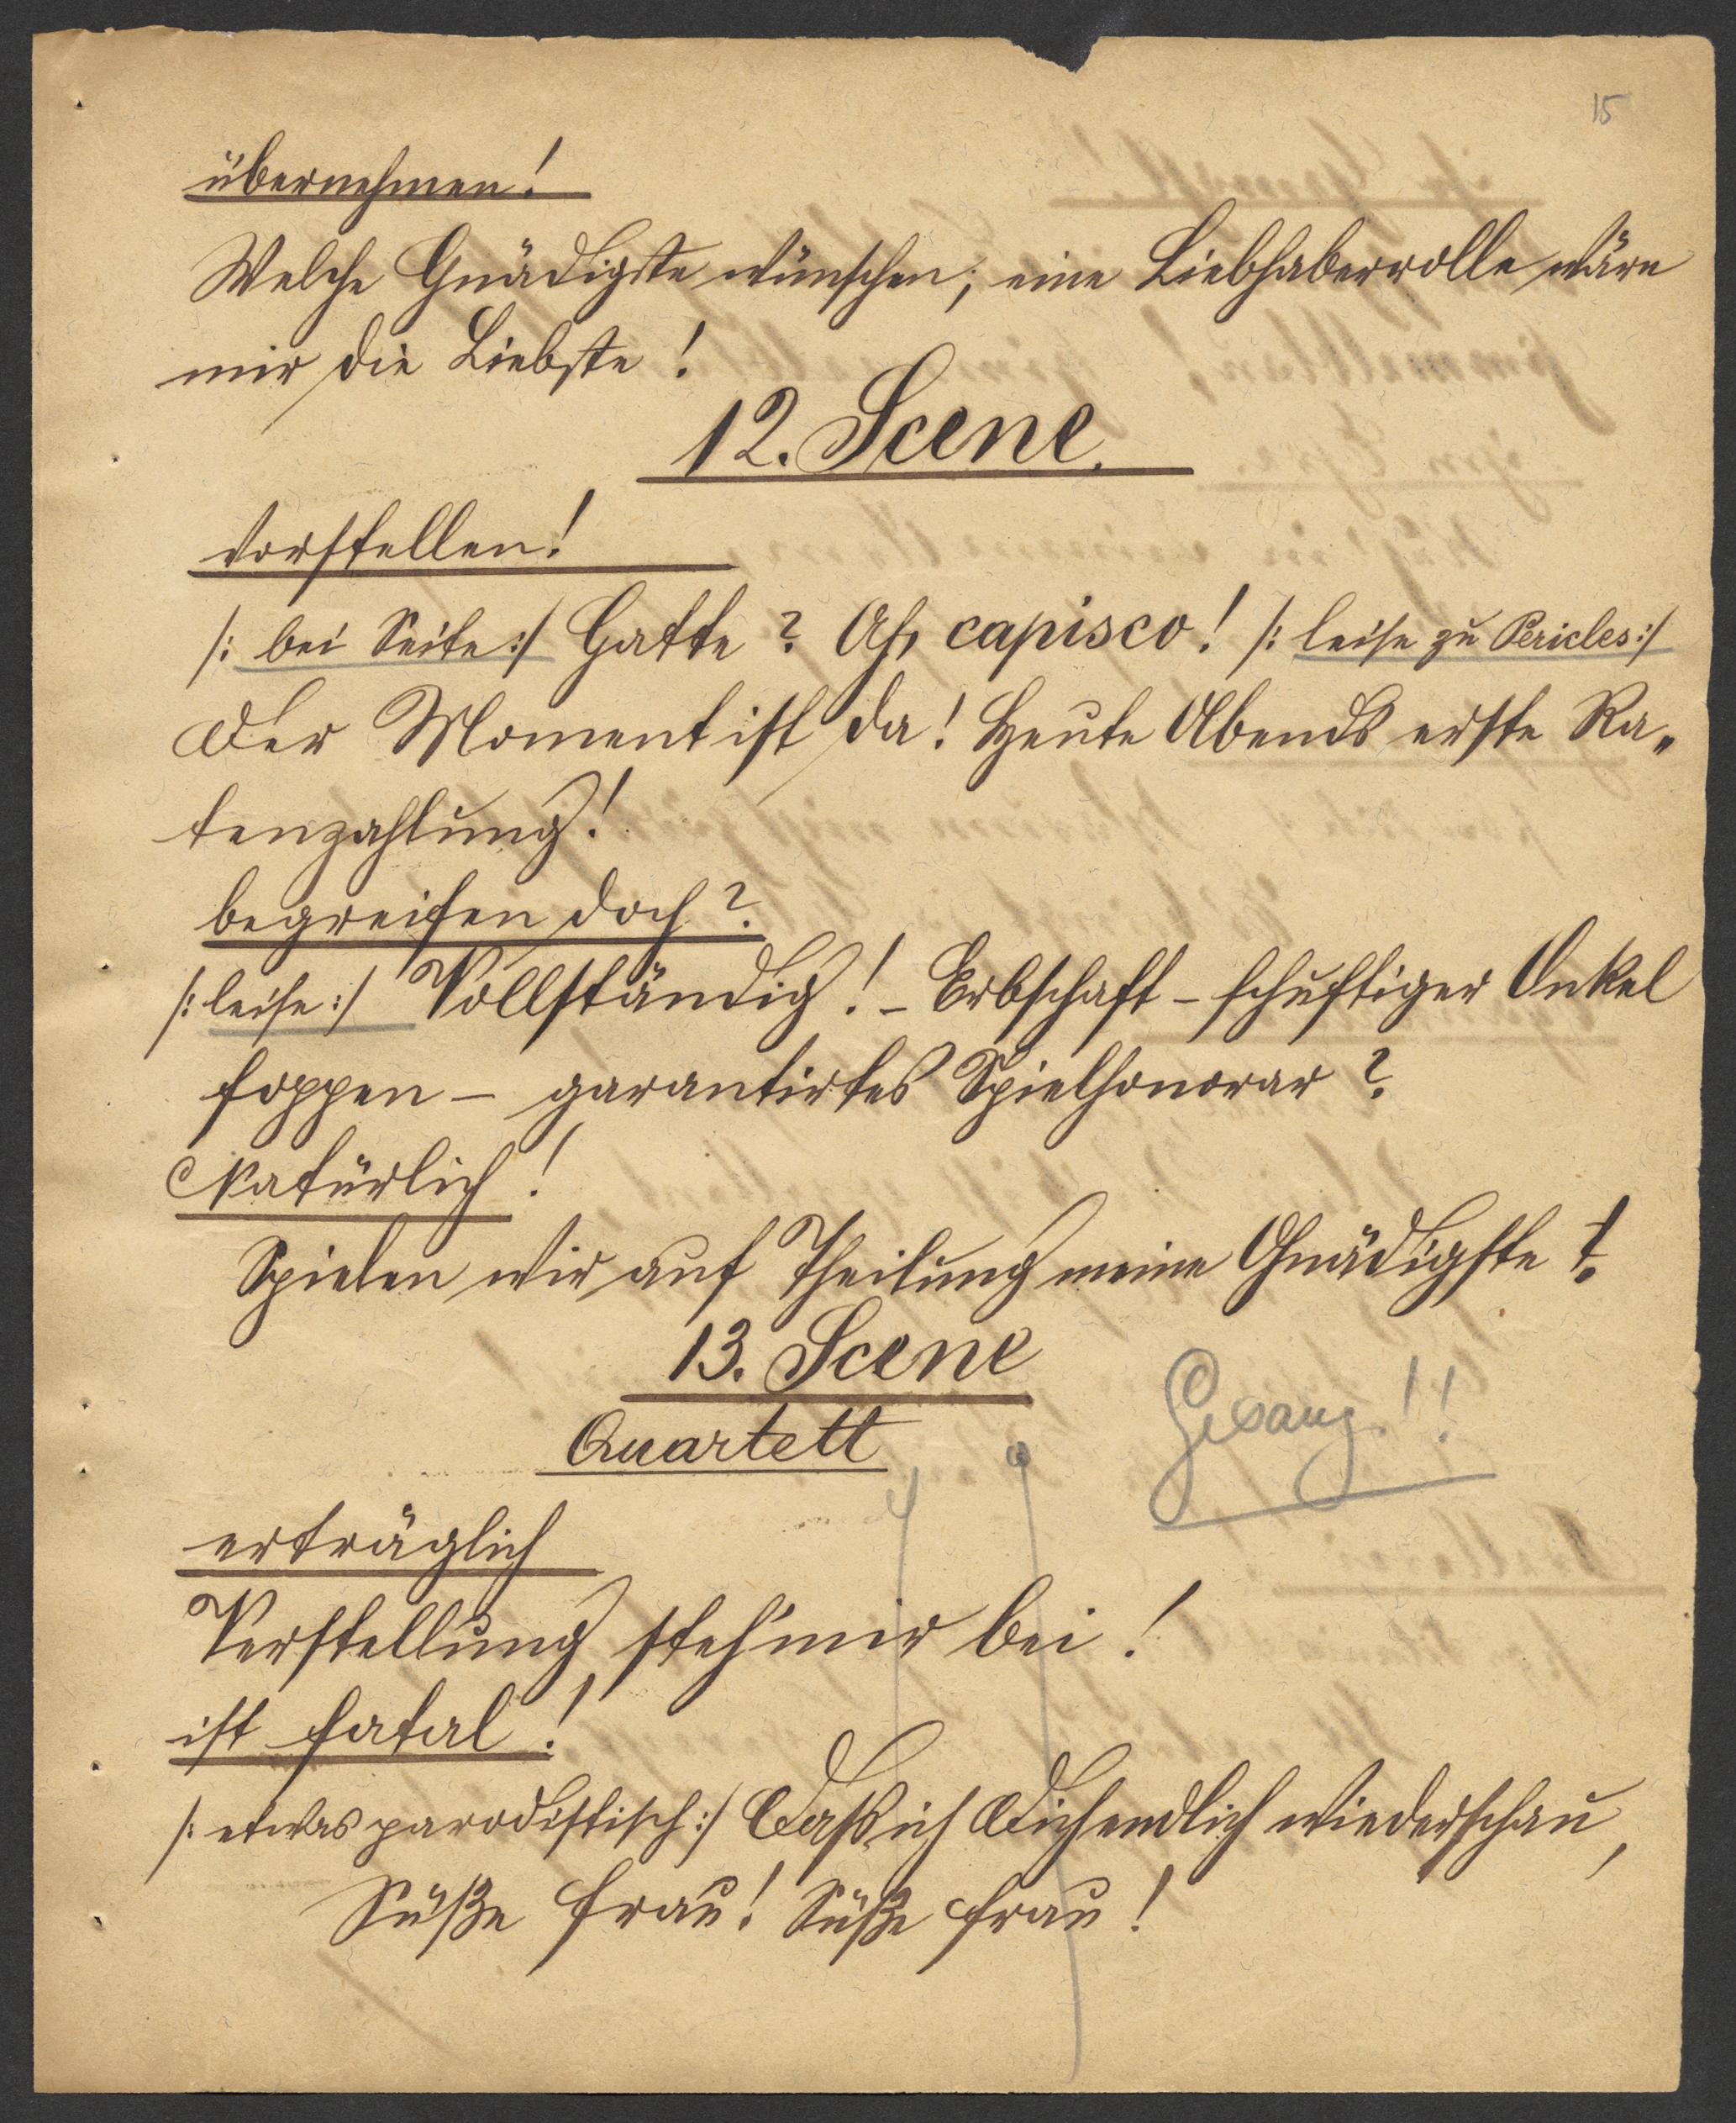 15
übernehmen!
Welche Gnädigste wünschen; eine Liebhaberrolle wäre
mir die Liebste!
12. Scene.
vorstellen!
/: bei Seite :/ Gatte? Ah, capisco! /: leise zu Pericles :/
Der Moment ist da! Heute Abends erste Ra„
tenzahlung!
begreifen doch?
/: leise :/ Vollständig! – Erbschaft – schuftiger Onkel
foppen – garantirtes Spielhonorar?
Natürlich!
Spielen wir auf Theilung meine Gnädigste?
13. Scene
Quartett
Gesang!!
erträglich
Verstellung, steh' mir bei!
ist fatal!
/: etwas parodistisch :/ Daß ich Dich endlich wiederschau,
Süße Frau! Süße Frau!